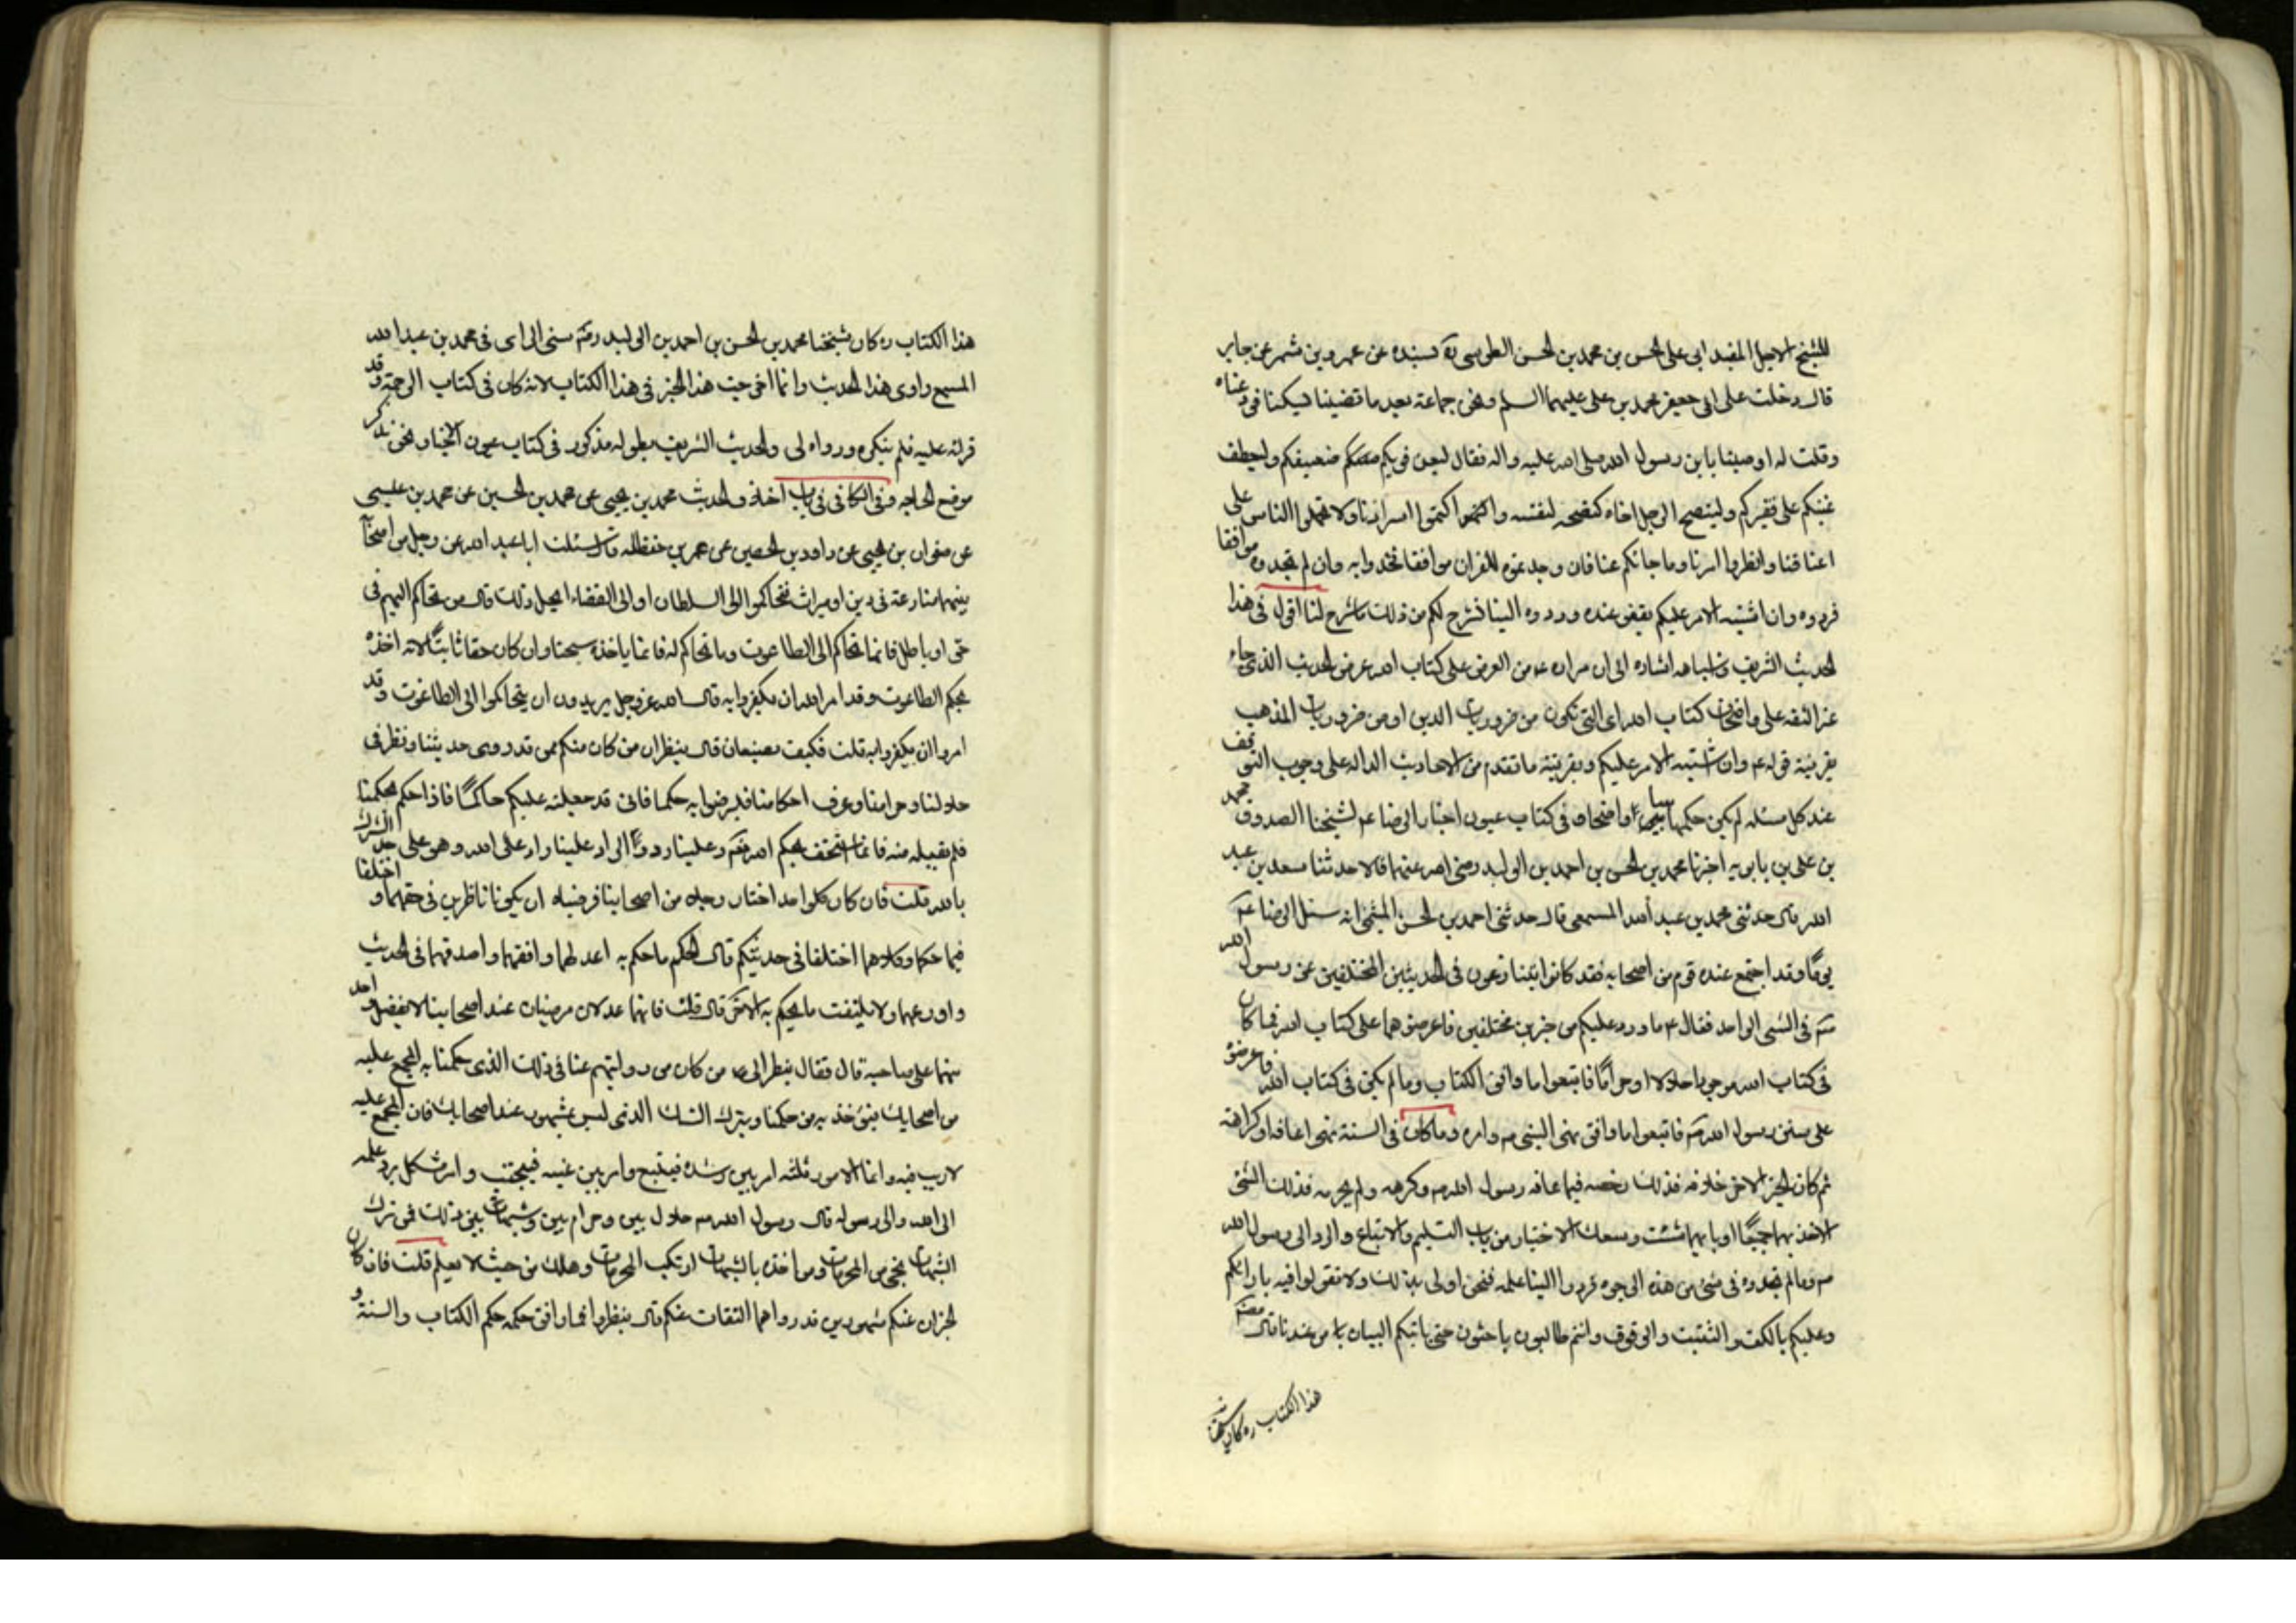 للشيخ الاجل المفيد ابي على الحسن بن محمد بن الحسن الطوسى ره بسنده عن عمرو بن شمر عن جابر
قال دخلت على ابى جعفر محمد بن على عليهما السلم ونحن جماعة بعد ما قضينا نسكنا فودعناه
وقلت له اوصينا يا بن رسول الله صلى الله عليه واله فقال ليعن قويكم ضعيفكم وليعطف
غنيكم على فقيركم ولينصح الرجل اخاه كنصحه لنفسه واكتموا اسرارنا ولا تحملوا الناس على
اعناقنا وانظروا امرنا وما جائكم عنا فان وجدتموه للقران موافقا فخذوا به وان لم تجدوه موافقا
فردوه وان اشتبه الامر عليكم فقفوا عنده وردوه الينا نشرح لكم من ذلك ما شرح لنا اقول فى هذا
الحديث الشريف و اشباهه اشاره الى ان مراده ع من العرض على كتاب الله عرض الحديث الذى جاء
غير الثقه على واضحات كتاب الله اى التى تكون من ضروريات الدين او من ضروريات المذهب
بقرينة قوله ع وان اشتبه الامر عليكم وبقرينة ما تقدم من الاحاديث الداله على وجوب التوقف
عند كل مسئله لم يكن حكمها بينا واضحا وفى كتاب عيون اخبار الرضا ع لشيخنا الصدوق محمد
بن على بن بابويه اخبرنا محمد بن الحسن بن احمد بن الوليد رضى الله عنهما قالا حدثنا سعد بن عبد
الله قال حدثنى محمد بن عبد الله المسمعى قال حدثنى احمد بن الحسن الميثمى انه سئل الرضا ع
يوما وقد اجتمع عنده قوم من اصحابه فقد كانوا يتنازعون فى الحديثين المختلفين عن رسول الله
ص فى الشئ الواحد فقال ع ما ورد عليكم من خبرين مختلفين فاعرضوهما على كتاب الله فما كان
فى كتاب الله موجودا حلالا او حراما فاتبعوا ما وافق الكتاب وما لم يكن فى كتاب الله فاعرضوه
على سنن رسول الله ص فاتبعوا ما وافق نهى النبى ص وامره وما كان فى السنة نهى اعافة او كراهة
ثم كان الخبر الاخر خلافه فذلك رخصه فيما عافه رسول الله ص وكرهه ولم يحرمه فذلك الذى
الاخذ بهما جميعًا او بايهما شئت وسعك الاختيار من باب التسليم والاتباع والرد الى رسول الله
ص وما لم تجدوه فى شئ من هذه الوجوه فردوا الينا علمه فنحن اولى بذلك ولا تقولوا فيه بارائكم
وعليكم بالكف والتثبت والوقوف وانتم طالبون باحثون حتى ياتيكم البيان من عندنا قال مصنف
هذا الكتاب ره كان شيخنا
هذا الكتاب ره كان شيخنا محمد بن الحسن بن احمد بن الوليد رضى الله عنه سئ الراى فى محمد بن عبد الله
المسمعى راوى هذا الحديث وانما اخرجت هذا الخبر فى هذا الكتاب لانه كان فى كتاب الرحمة وقد
قراته عليه فلم ينكره ورواه لى والحديث الشريف بطوله مذكور فى كتاب عيون الاخبار نحن نذكر
موضع الحاجه وفى الكافى فى باب اختلاف الحديث محمد بن يحيى عن محمد بن الحسين عن محمد بن عيسى
عن صفوان بن يحيى عن داود بن الحصين عن عمر بن حنظله قال سئلت ابا عبد الله عن رجلين من اصحابنا
بينهما منازعة فى دين او ميراث فتحاكموا الى السلطان او الى القضاء ايحل ذلك قال من تحاكم اليهم فى
حق او باطل فانما تحاكم الى الطاغوت وما تحاكم له فانما ياخذه سحتا وان كان حقا ثابتًا لانه اخذه
بحكم الطاغوت وقد امر الله ان يكفروا به قال الله عز وجل يريدون ان يتحاكموا الى الطاغوت وقد
امروا ان يكفروا به قلت فكيف يصنعان قال ينظران من كان منكم ممن قد روى حديثنا ونظر فى
حلالنا وحرامنا وعرف احكامنا فليرضوا به حكما فانى قد جعلته عليكم حاكمًا فاذا حكم بحكمنا
فلم يقبله منه فانما استخف بحكم الله وعلينا رد والراد علينا راد على الله وهو على حد الشرك
بالله قلت فان كان كل واحد اختار رجلا من اصحابنا فرضيا ان يكونا ناظرين فى حقهما و اختلفا
فيما حكما وكلاهما اختلفا فى حديثكم قال الحكم ما حكم به اعدلهما وافقههما واصدقهما فى الحديث
واورعهما ولا يلتفت ما يحكم به الاخر قال قلت فانهما عدلان مرضيان عند اصحابنا لا يفضل واحد
منهما على صاحبه قال فقال ينظر الى ما من كان من روايتهم عنا فى ذلك الذى حكمنا به المجمع عليه
من اصحابك فيؤخذ به من حكمنا ويترك الشاذ الذى ليس بمشهور عند اصحابك فان المجمع عليه
لا ريب فيه وانما الامور ثلثه امر بين رشده فيتبع وامر بين غيه فيجتنب وامر مشكل يرد علمه
الى الله والى رسوله قال رسول الله ص حلال بين وحرام بين وشبهات بين ذلك فمن ترك
الشبهات نجى من المحرمات ومن اخذه بالشبهات ارتكب المحرمات وهلك من حيث لا يعلم قلت فان كان
الخبران عنكم مشهورين قد رواهما الثقات عنكم قال ينظروا فما وافق حكمه حكم الكتاب والسنة و